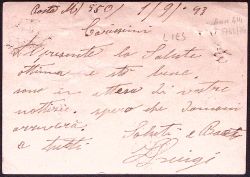 Posta M. 550 / 1/9/-43
Carissimi
LIES
Al presente la Salute è
ottima e sto bene.
sono in attesa di vostre
notizie. spero che domani
arriverà.
Saluti e Baci
a tutti
Luigi